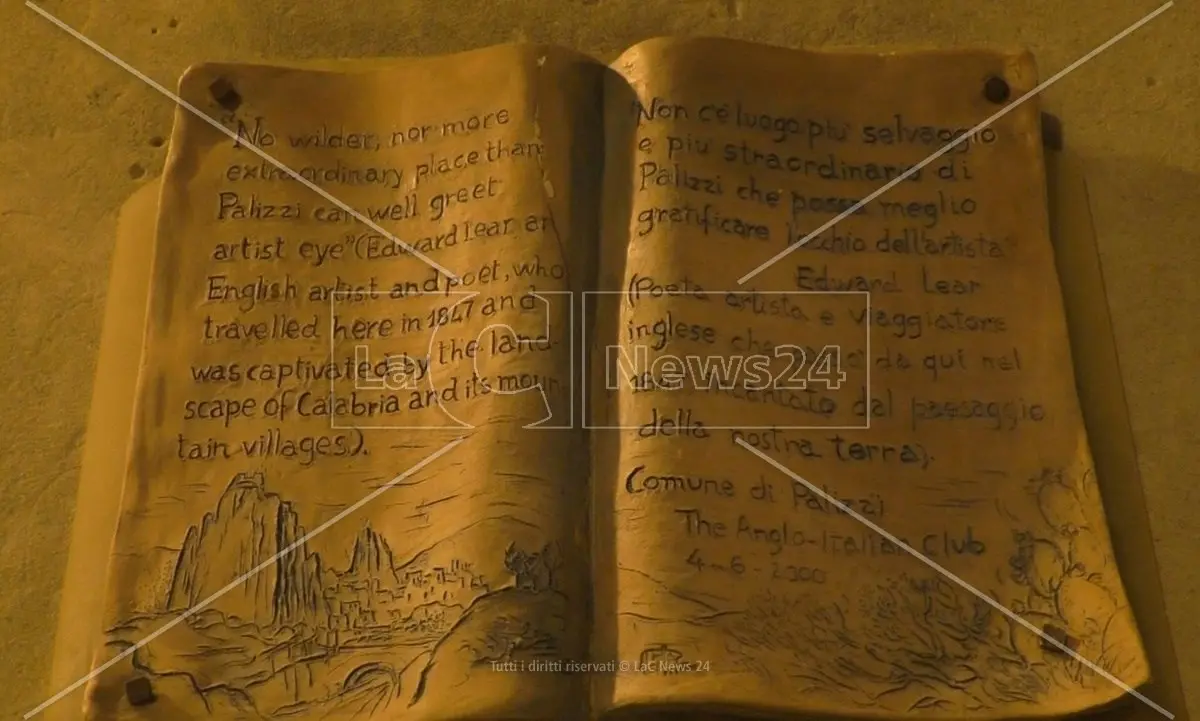 "No wilder, nor more
extraordinary place than
Palizzi can well greet
artist eye" (Edward Lear an
English artist and poet, who
travelled here in 1847 and
was captivated by the land-
scape of Calabria and its moun-
tain villages).
"Non c'é luogo piu' selvaggio
e piu straordinario di
Palizzi che possa meglio
gratificare l'occhio dell'artista"
Edward Lear
(Poeta artista e viaggiatore
inglese che da qui nel
incantato dal paesaggio
della nostra terra).
Comune di Palizzi
The Anglo-Italian Club
4-6-2000
LaC News24
Tutti i diritti riservati © LaC News 24